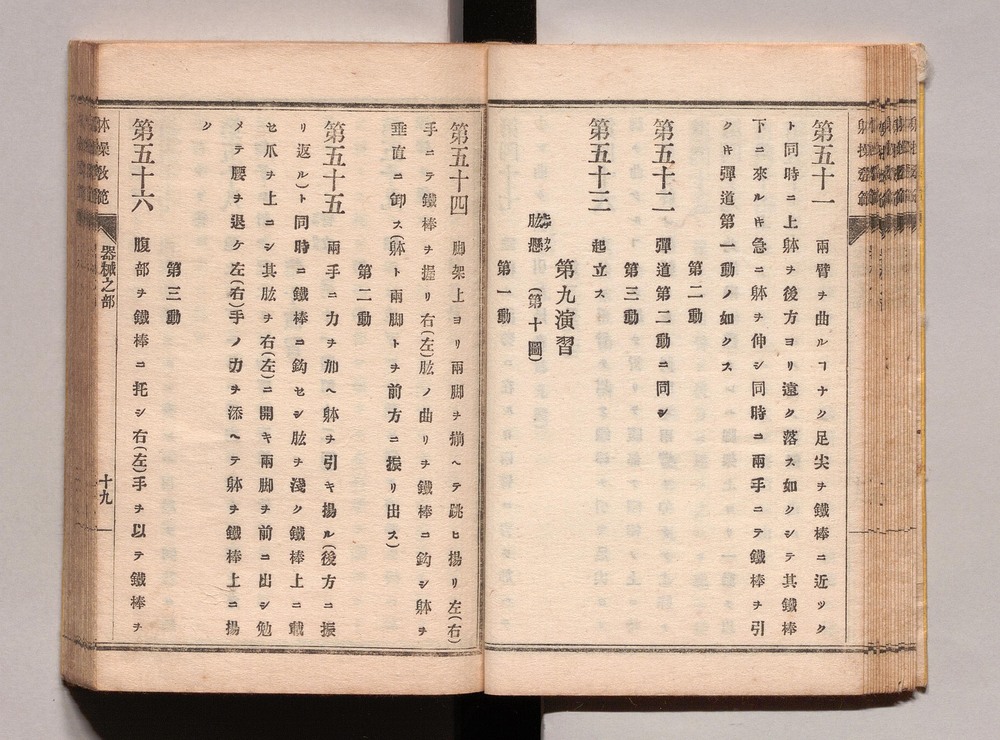 第五十一　兩臂ヲ曲ルヿナク足尖ヲ鐵棒ニ近ツク
ト同時ニ上躰ヲ後方ヨリ遠ク落ス如クシテ其鐵棒
下ニ來ルキ急ニ躰ヲ伸シ同時ニ兩手ニテ鐵棒ヲ引
クキ彈道第一動ノ如クス
第二動
第五十二　彈道第二動ニ同シ
第三動
第五十三　起立ス
第九演習
肱懸(第十圖)
第一動
第五十四　脚架上ヨリ兩脚ヲ揃ヘテ跳ヒ揚リ左(右)
手ニテ鐵棒ヲ握リ右(左)肱ノ曲リヲ鐵棒ニ鈎シ躰ヲ
垂直ニ卸ス(躰ト兩脚トヲ前方ニ振リ出ス)
第二動
第五十五　兩手ニ力ヲ加ヘ躰ヲ引キ揚ル(後方ニ振
リ返ル)ト同時ニ鐵棒ニ鈎セシ肱ヲ淺ク鐵棒上ニ載
セ爪ヲ上ニシ其肱ヲ右(左)ニ開キ兩脚ヲ前ニ出シ勉
メテ腰ヲ退ケ左(右)手ノ力ヲ添ヘテ躰ヲ鐵棒上ニ揚
ク
第三動
第五十六　腹部ヲ鐵棒ニ托シ右(左)手ヲ以テ鐵棒ヲ
体操教範
器械之部
十九